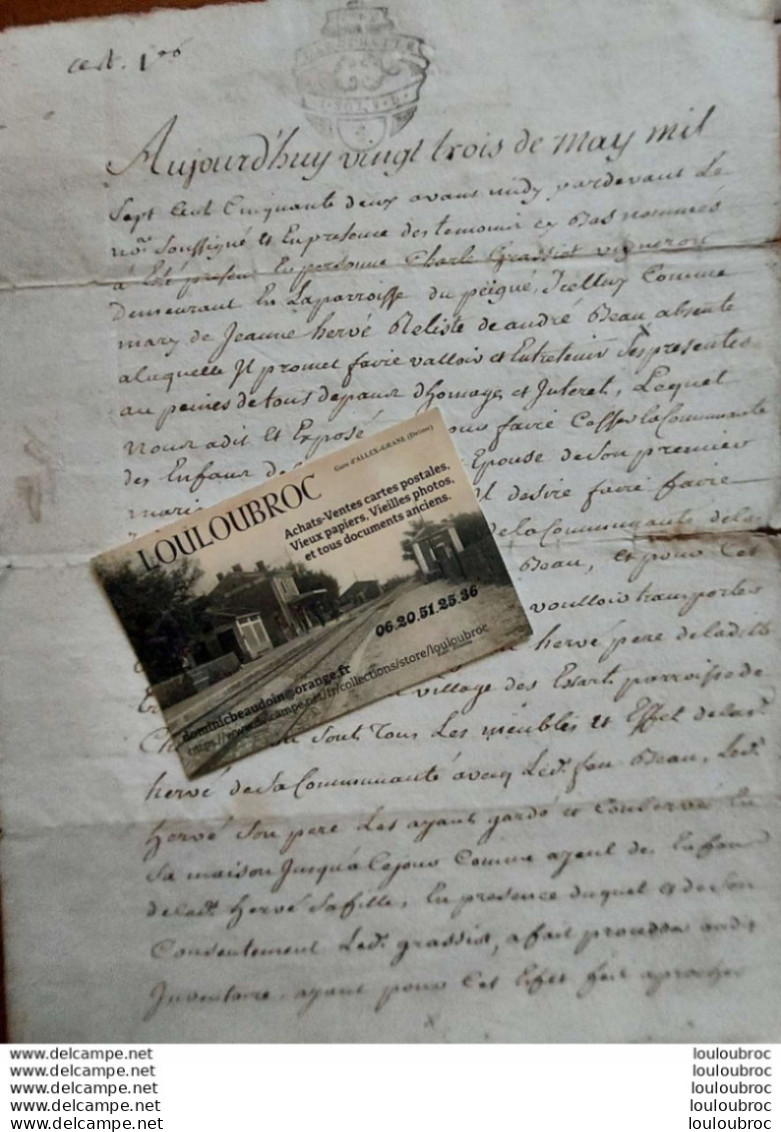 Aujourd'huy vingt trois de may mil
Sept Cent Cinquante deux avant midy pardevant Le
no.re Soussigné et En presence des temoins cy Bas nommés
à Eté présent En personne Charle Grassiot vigneron
demeurant En La parroisse du peigne, Icelluy Comme
mary de Jeanne hervé Reliste de andré Beau absente
a laquelle Il promet faire valloir et Entretenir Ses presentes
au peines de tous depans dhomages et Interet, Lequel
Nous a dit et Exposé vous faire Cesser la Communauté
des Enfans de Epouse de Son premier
mari Il desire faire faire
de la Communauté de la
Beau, et pour Cet
voulloir transporter
hervé pere de la ditte
village des Essart parroisse de
Sont Tous Les meubles et Effet de la d.
hervé de Sa Communauté avecq Led. feu Beau, Led.
hervé Son pere Les ayant gardé et Conservé En
Sa maison Jusqu'à Ce jour Comme ayeul des Enfans
de la d. hervé Sa fille, En presence duquel et de Son
Consentement Led. grassiot, a fait proceder audit
Inventaire, ayant pour Cet Effet fait aprocher
Gare d'ALLEX-GRANE (Drôme)
LOULOUBROC
Achats-Ventes cartes postales,
Vieux papiers, Vieilles photos,
et tous documents anciens.
06.20.51.25.36
dominicbeaudoin@orange.fr
https://www.delcampe.net/fr/collections/store/louloubroc
www.delcampe.net louloubroc
www.delcampe.net louloubroc
www.delcampe.net louloubroc
www.delcampe.net louloubroc
www.delcampe.net louloubroc